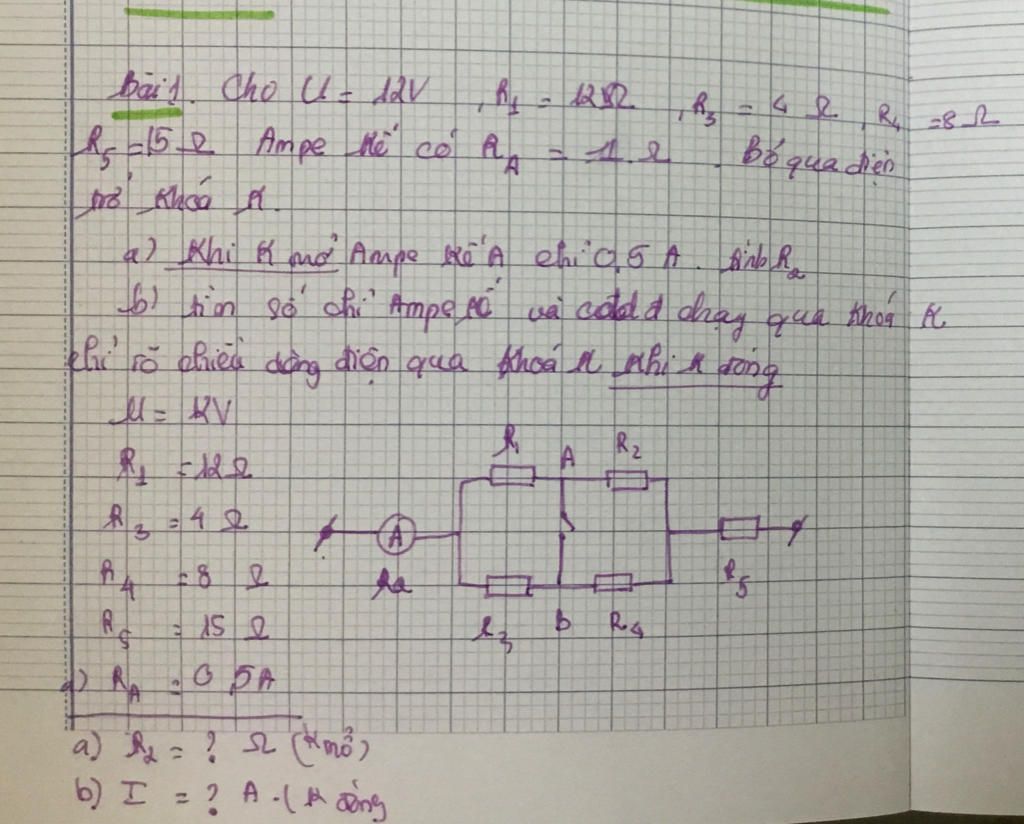 Bài 1. Cho U = 12V , R1 = 12Ω , R3 = 4 Ω , R4 = 8 Ω
R5 = 15 Ω Ampe kế có RA = 1 Ω . Bỏ qua điện
trở khoá K.
a) Khi K mở Ampe kế A chỉ 0,5 A. tính R2
b) tìm số chỉ Ampe kế và cđdđ chạy qua khoá K
chỉ rõ chiều dòng điện qua khoá K khi K đóng
U = 12V
R1 = 12 Ω
R3 = 4 Ω
R4 = 8 Ω
R5 = 15 Ω
RA = 0,5A
a) R2 = ? Ω (K mở)
b) I = ? A. (K đóng
R1 A R2
A
Ra R5
R3 B R4